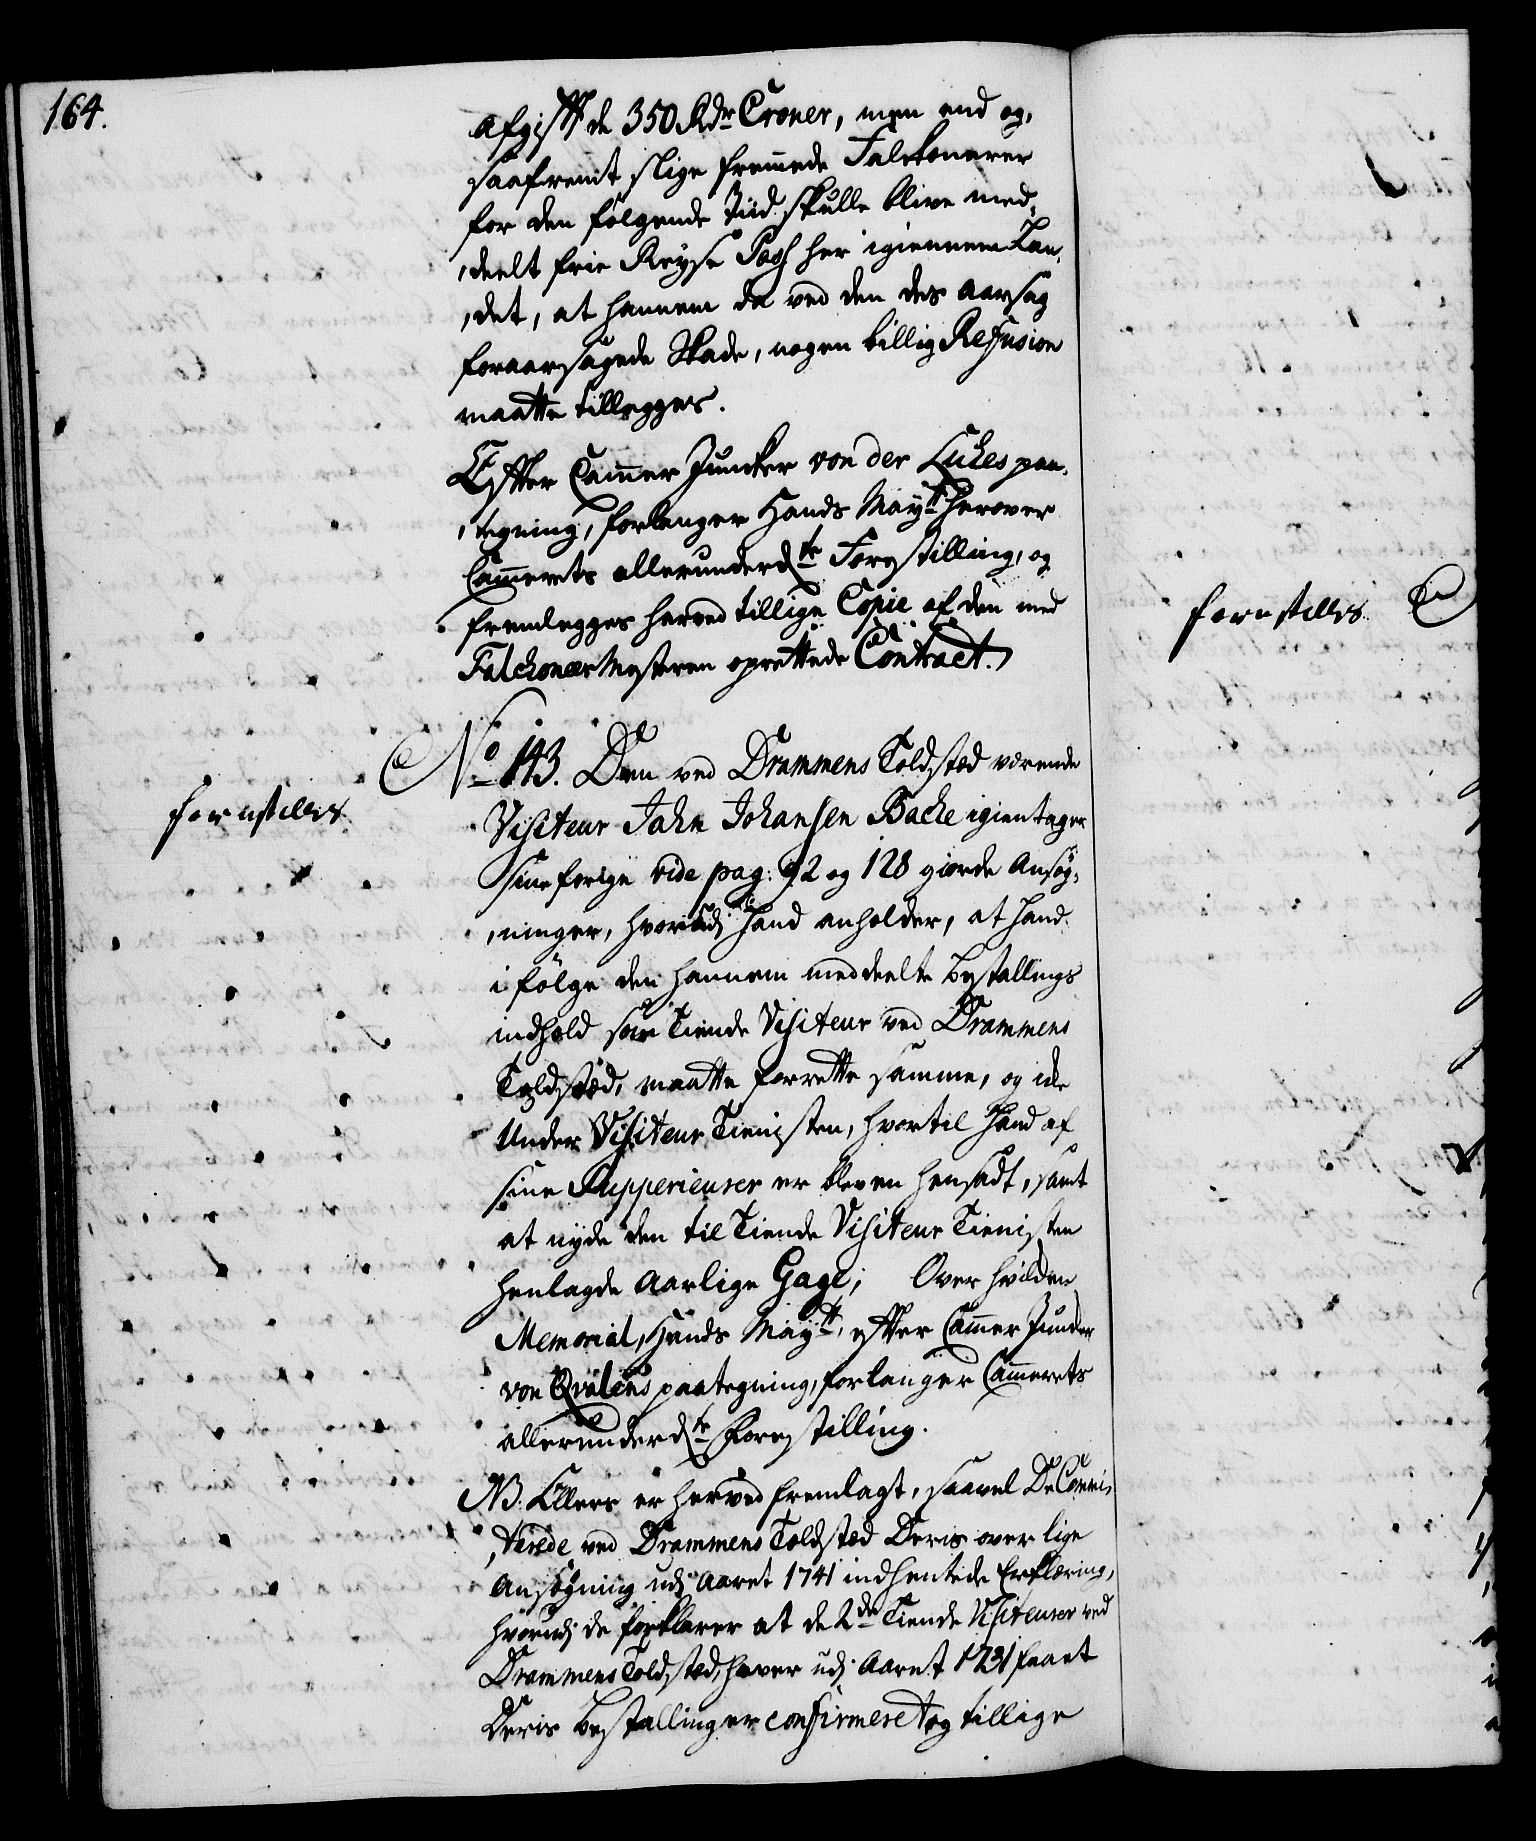 164.
afgifft de 350 Rdr Croner, men end og,
saafremt slige fremmede Falckonerer
for den følgende Tiid skulle blive med,
,deelt frie Reyse Pass her igiennem Lan,
,det, at hannem da ved den des Aarsag
foraarsagede Skade, nogen billig Refusion
maatte tillegges.
Efter Cammer Juncker von der Lühes paa,
,tegning, forlanger Hands Mayts herover
Cammerets allerunderdste Forestilling, og
fremlegges herved tillige Copie af den med
Falchoneer Mesteren oprettede Contract.
forestilles
No 143. Den ved Drammens Toldsted værende
forestilles
Visiteur Jahn Johansen Backe igientager
sine forige vide pag: 92 og 128 giorde Ansøg,
,ninger, hvorudj hand anholder, at hand
i følge den hannem meddeelte Bestallings
indhold som Tiende Visiteur ved Drammens
Toldsted, maatte forrette samme, og icke
Under Visiteur Tienisten, hvortil hand af
sine Supperieurer er bleven hensadt, samt
at nyde den til Tiende Visiteur Tienisten
henlagde Aarlige Gage; Over hvilden
Memorial, Hands Mayts, efter Cammer Juncker
von Qvalens paategning, forlanger Cammerets
allerunderdste Forestilling.
NB. Ellers er herved fremlagt, saavel De Commit,
,terede ved Drammens Toldsted Deris over lige
Ansøgning udj Aaret 1741 indhentede Erklæring,
hvorudj de forklarer at de 2de Tiende Visiteurer ved
Drammens Toldsted, haver udj Aaret 1731 faaet
Deris Bestallinger confirmeret og tillige